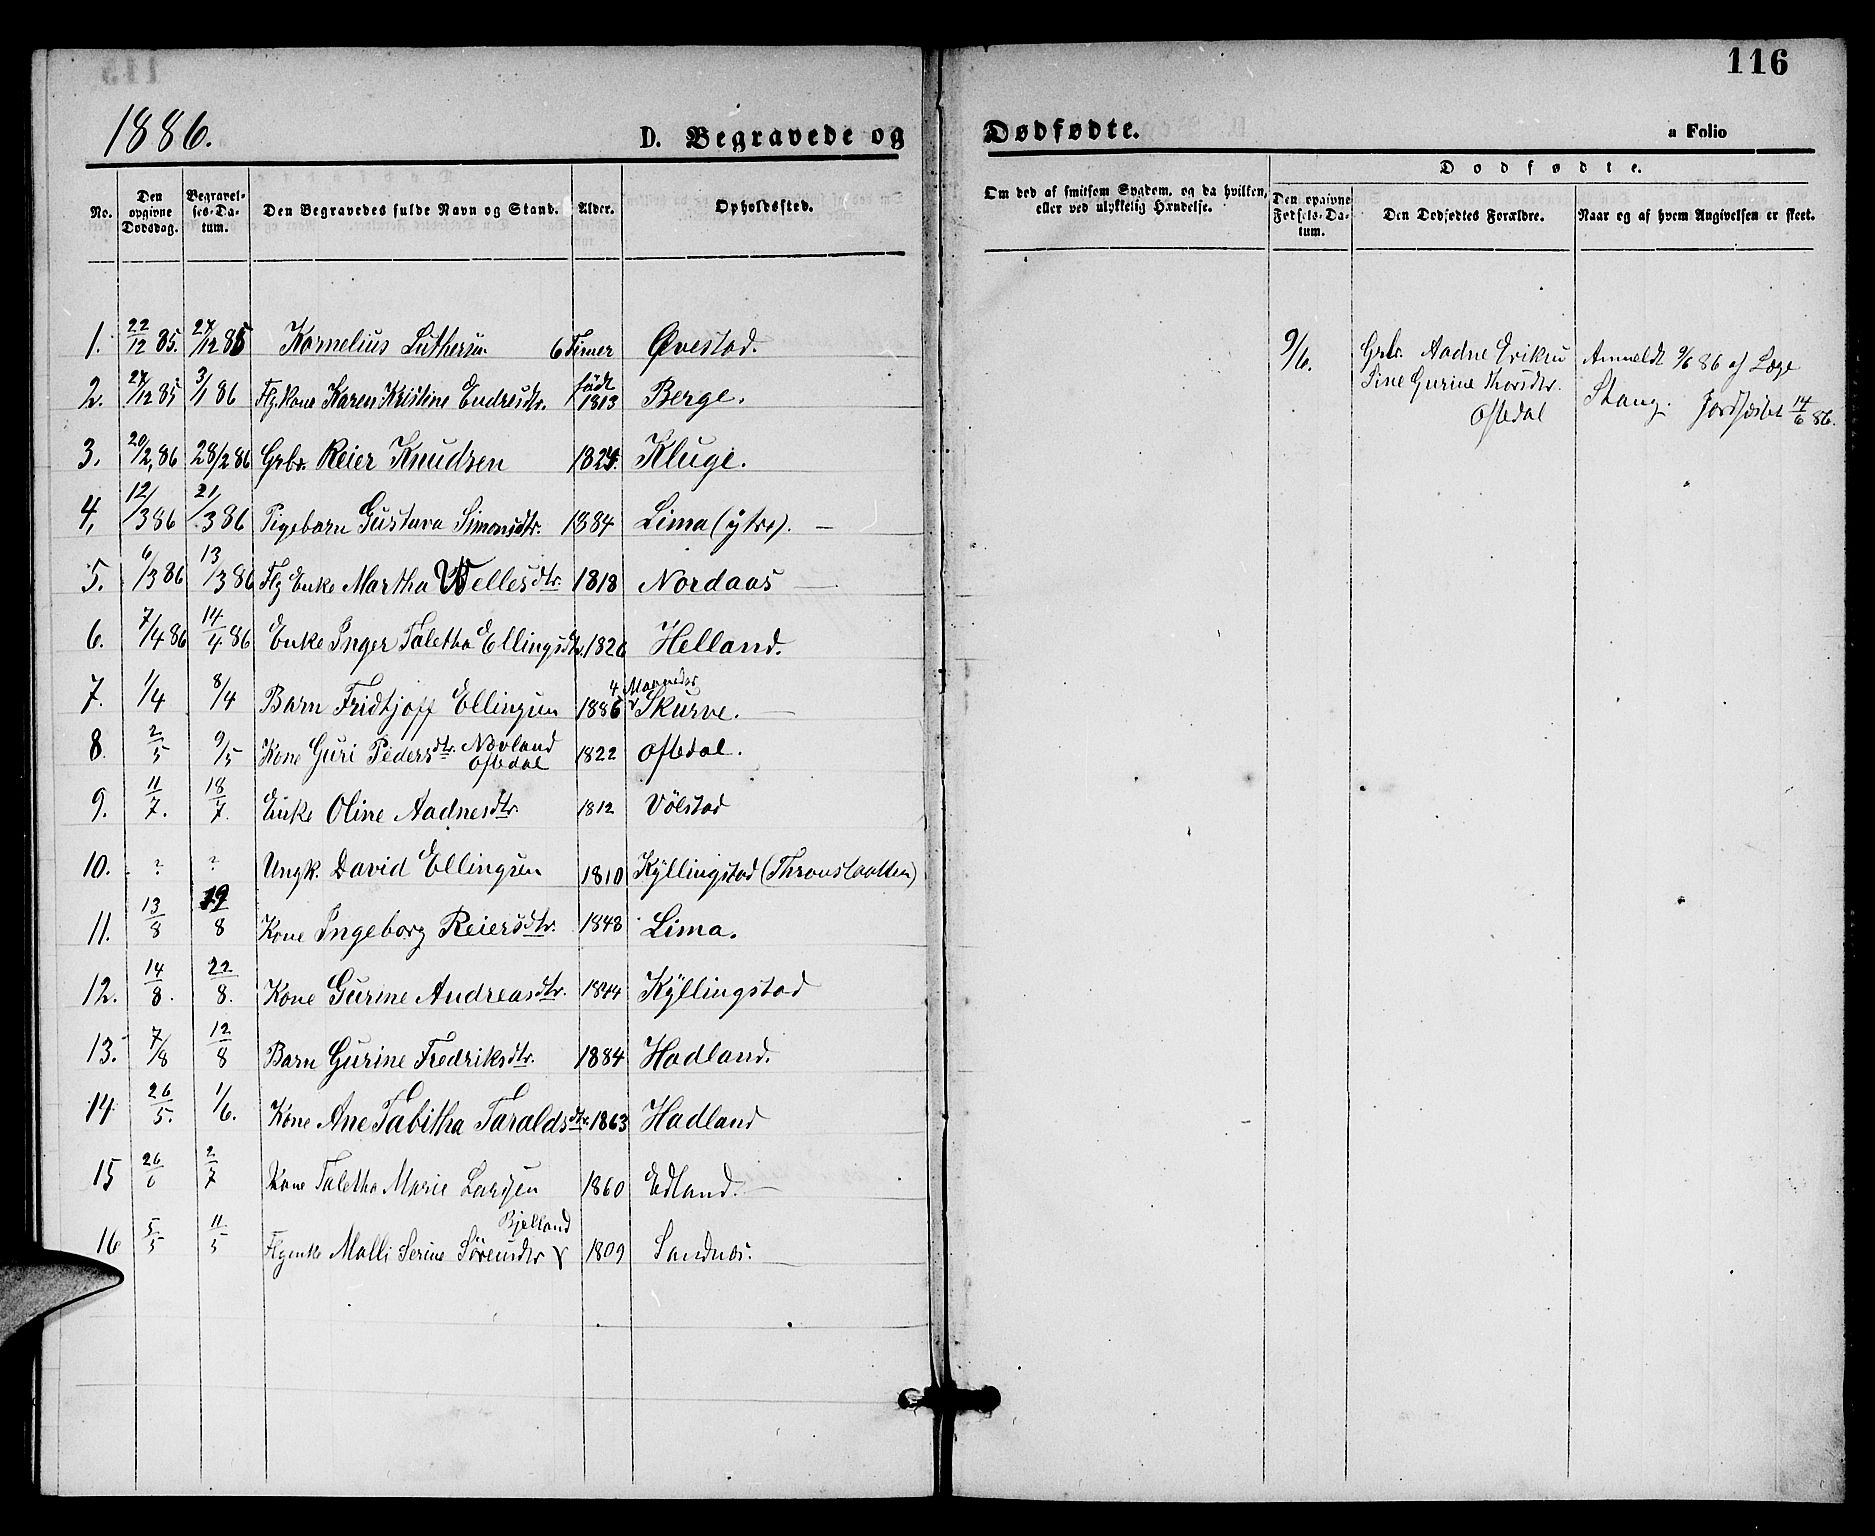 116
1886.
D. Begravede og Dødfødte.
a Folio
No.
Den opgivne Dødsdag.
Begravelses-Datum.
Den Begravedes fulde Navn og Stand.
Alder.
Opholdssted.
Om død af smitsom Sygdom, og da hvilken, eller ved ulykkelig Hændelse.
Dødfødte.
Den opgivne Fødsels-Datum.
Den Dødfødtes Forældre.
Naar og af hvem Angivelsen er skeet.
1. 22/12 85. 27/12 85 Kornelius Luthersen 6 Timer Øvestad.
2. 27/12 85 3/1 86 Flg. Kone Karen Kristine Endresdtr. født 1813 Berge.
3. 20/2 86 28/2 86 Gbr. Reier Knudsen 1824. Kluge.
4, 12/3 86 21/3 86 Pigebarn Gustava Simonsdtr. 1884 Lima (ytre). —
5. 6/3 86 13/3 86 Flg Enke Martha Vellesdtr. 1818 Nordaas —
6. 7/4 86 14/4 86 Enke Inger Taletha Ellingsdtr. 1826 Helland.
7. 1/4 8/4 Barn Fridtjoff Ellingsen 1886 4 Maaneder Skurve. —
8. 2/5 9/5 Kone Guri Pedersdtr. Novland Oftedal 1822 Oftedal.
9. 11/7. 18/7. Enke Oline Aadnesdtr. 1812 Vølstad
10. ? ? Ungk. David Ellingsen 1810 Kyllingstad (Thronslaatten)
11. 13/8 19/8 Kone Ingeborg Reiersdtr. 1848 Lima.
12. 14/8. 22/8. Kone Gurine Andreasdtr. 1844 Kyllingstad
13. 7/8 12/8 Barn Gurine Fredriksdtr. 1884 Hadland.
14 26/5. 1/6. Kone Ane Tabitha Taraldsdtr. 1863 Hadland
15 26/6 2/7 Kone Taletha Marie Larsen 1860 Edland. —
16 5/5 11/5 Flgenke Malli Serine Sørensdtr Bjelland 1809 Sandnæs. —
9/6. Gbr. Aadne Eriksen
Sine Gurine Thorsdtr.
Oftedal
Anmeldt 9/6 86 af Læge
Stang. Jordfæstet 14/6 86.